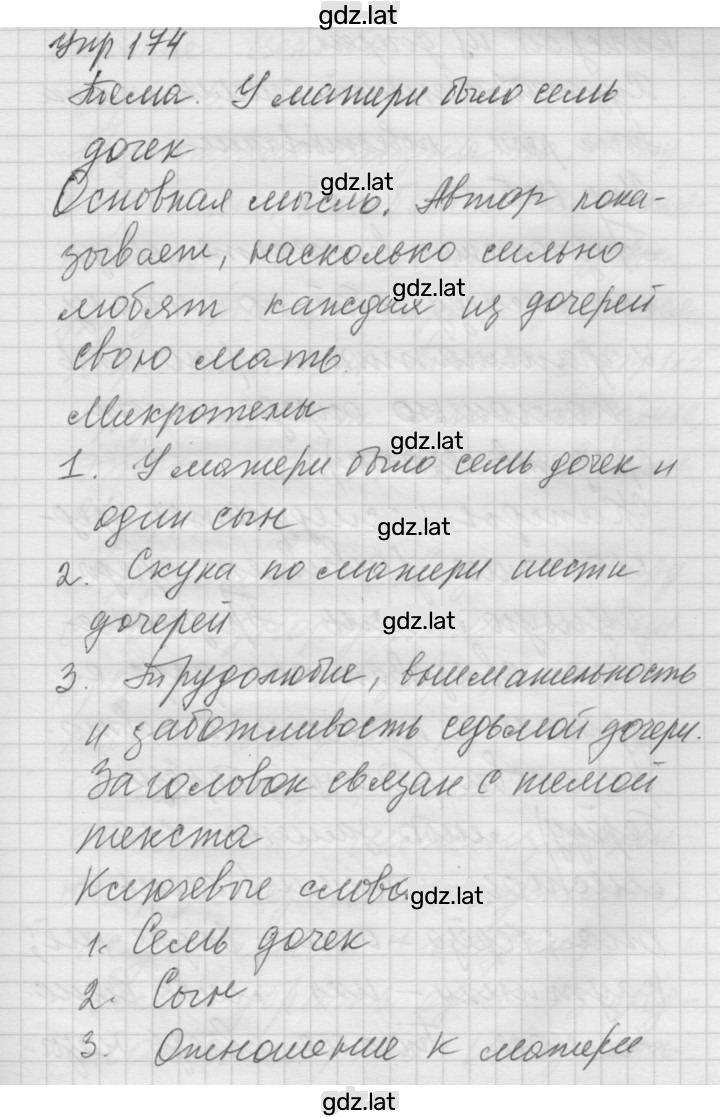 gdz.lat
Упр 174
Тема. У матери было семь
дочек
gdz.lat
Основная мысль. Автор пока-
зывает, насколько сильно
gdz.lat
любят каждая из дочерей
свою мать.
Микротемы
gdz.lat
1. У матери было семь дочек и
один сын
gdz.lat
2. Скука по матери шести
дочерей
gdz.lat
3. Трудолюбие, внимательность
и заботливость седьмой дочери.
Заголовок связан с темой
текста
Ключевые слова.
gdz.lat
1. Семь дочек
2. Сын
3. Отношение к матери
gdz.lat